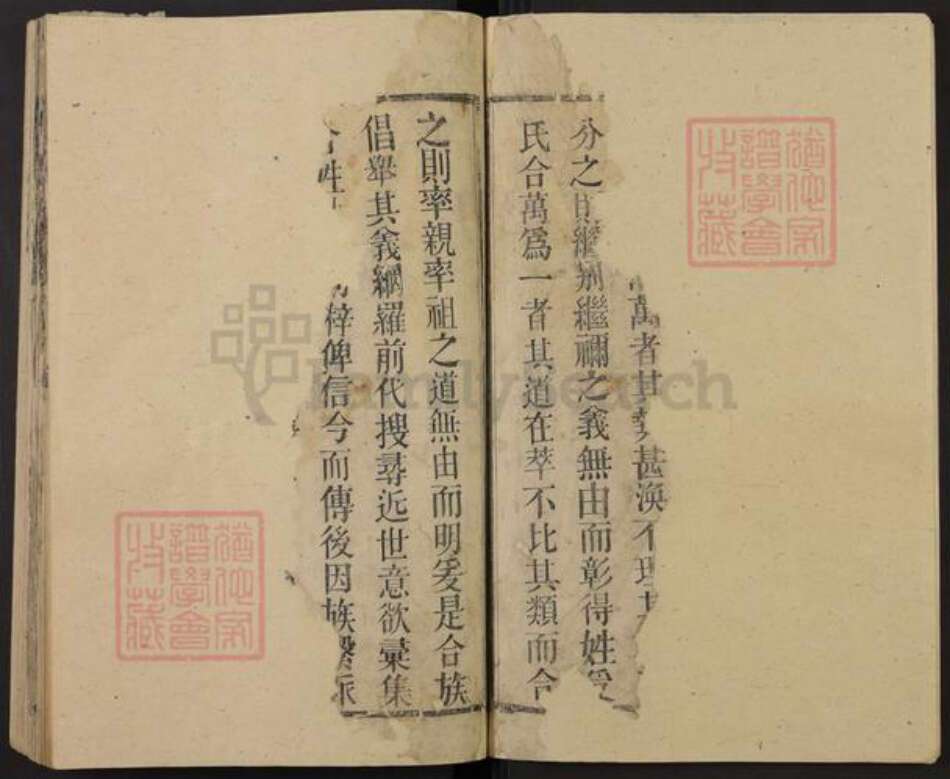 萬者其勢甚渙不理其
分之則繼別繼禰之義無由而彰得姓受
氏合萬爲一者其道在萃不比其類而合
之則率親率祖之道無由而明爰是合族
倡舉其義網羅前代搜尋近世意欲彙集
合姓
梓俾信今而傳後因族繁派
FamilySearch
譜學會
收藏
譜學會
收藏